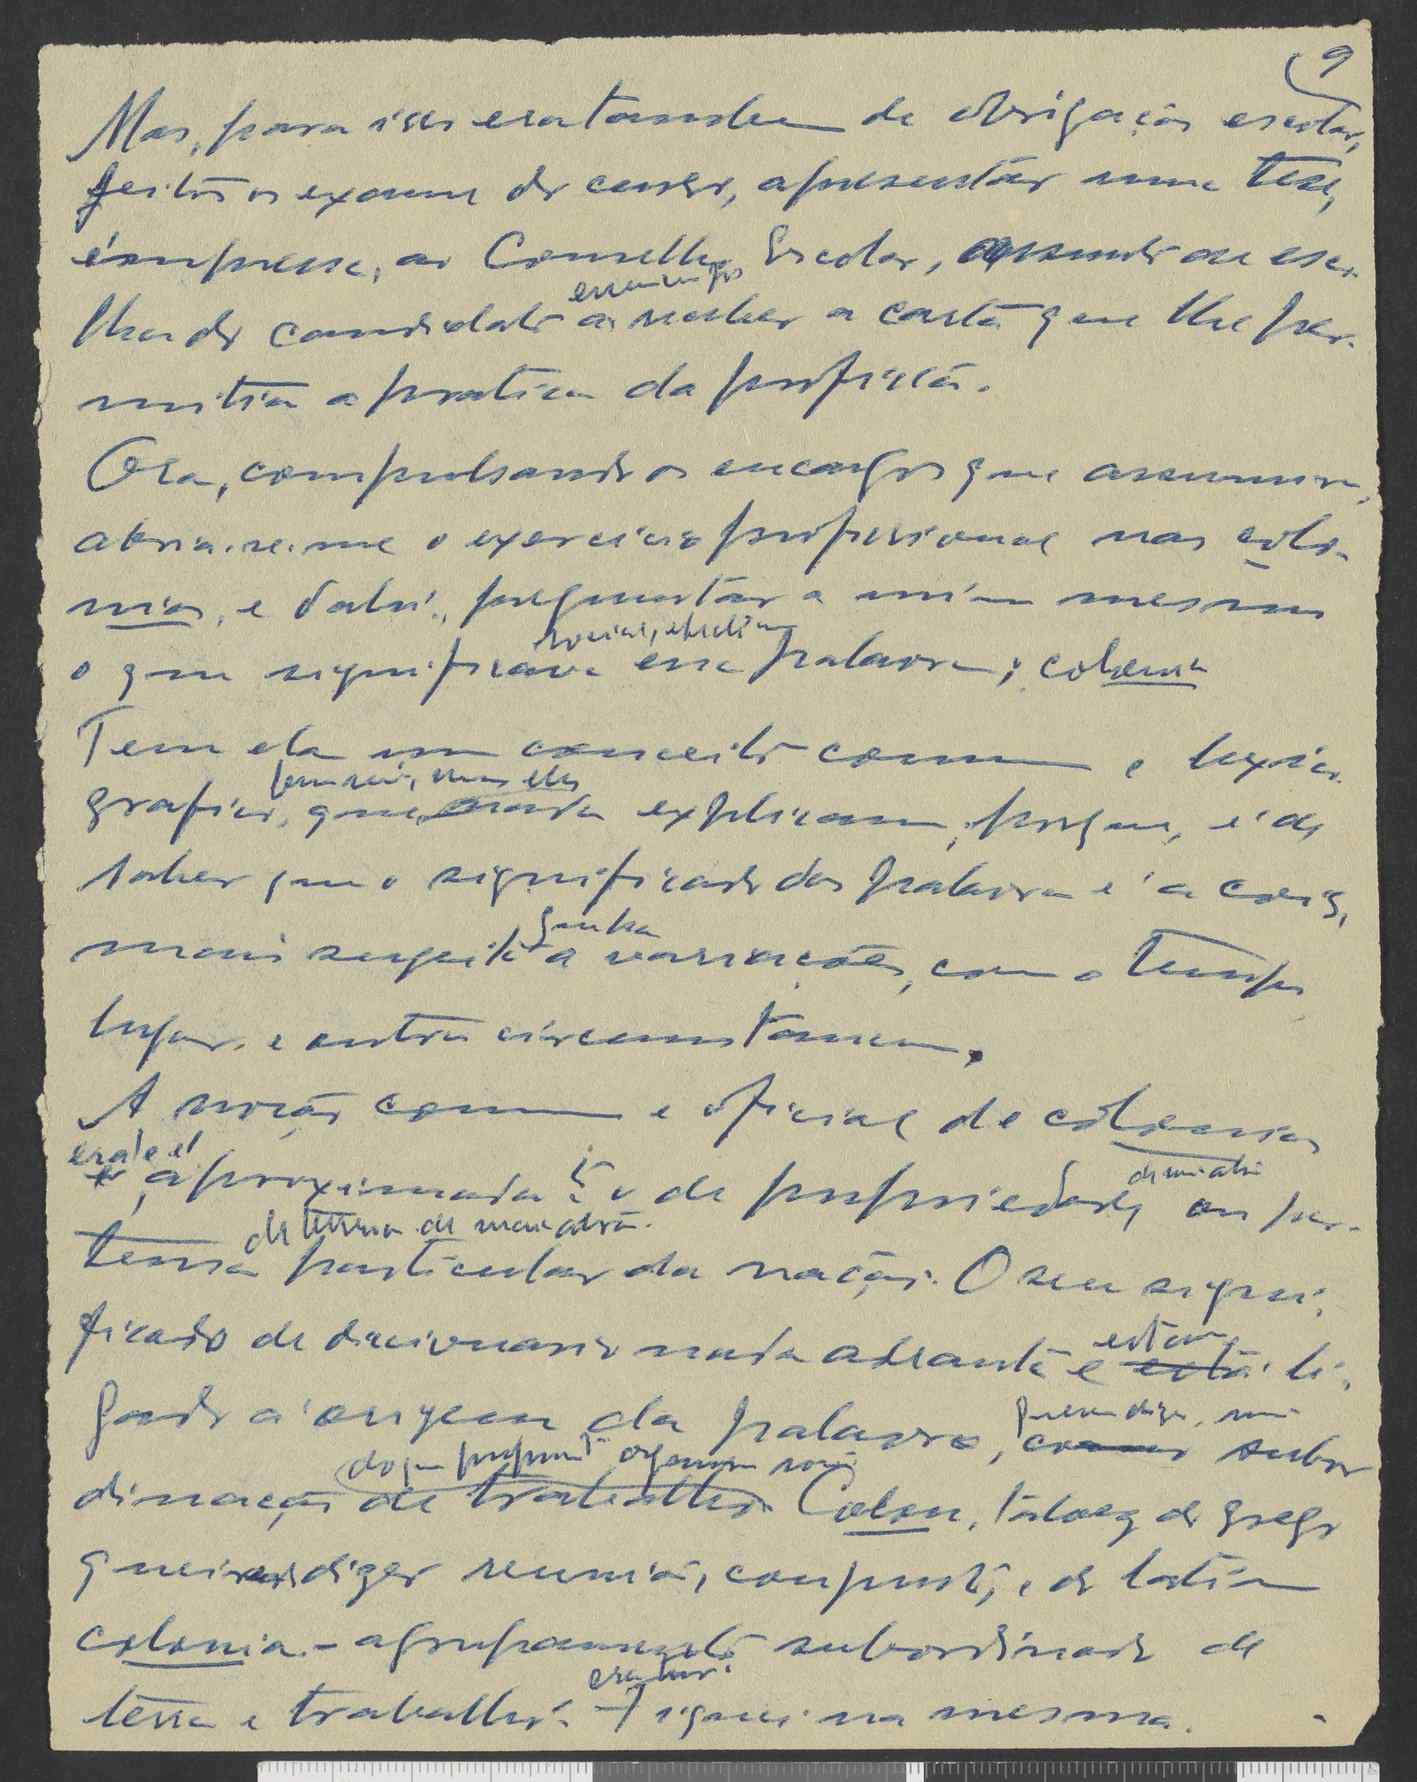 9
Mas, para isso era tambem de obrigação escolar,
feitos os exames do curso, apresentar uma tese,
impressa, ao Conselho Escolar, assunto da esco-
lha do candidato a receber a carta que lhe per-
mitia a pratica da profissão.
Ora, compulsando os encargos que assumira,
abria-se-me o exercicio profissional nas colo-
nias, e dahi, preguntar a mim mesmo
o que significava essa palavra; colonia
Tem ela um conceito comum e lexico-
grafico, que mas eles nada explicam, porque, é de
saber que o significado das palavras é a coisa,
mais sugeita a variações, com o tempo
lugar, e outras circumstancias.
A noção comum e oficial de colonias
era aproximada: o de propriedade ou per-
de terra de
tença particular da nação. O seu signi-
ficado de dicionario nada adeanta e estava está li-
gado á origem da palavra, quere dizer, como subor
dinação de trabalho. Colon, talvez do grego
queira dizer reunião, composto, e do latim
colonia - agrupamento subordinado de
terra e trabalho. Fiquei na mesma.